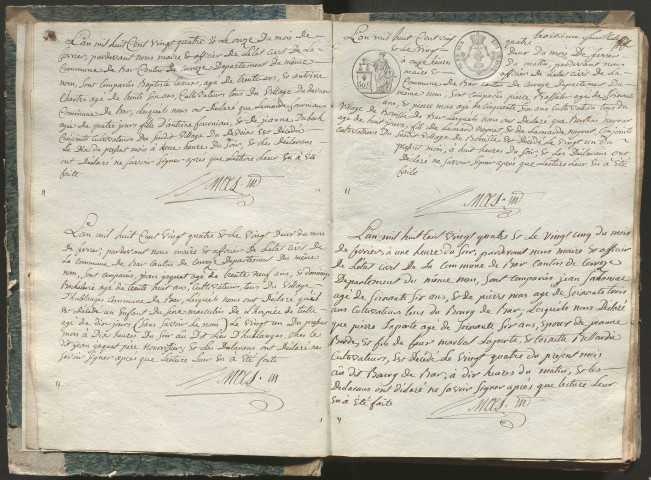 L'an mil huit Cent vingt quatre & le onze du mois de
fevrier, pardevant nous maire & officier de l'etat civil de la
Commune de Bar Canton de Correze Departement du même
nom, sont comparus Baptiste age de trente ans, & antoine
age de trente six ans, Cultivateurs tous du Village du
Commune de Bar, lesquels nous ont Declaré que Leonarde
age de quatre jours fille d'antoine & de jeanne
conjoints cultivateurs du susdit Village est Décédé
le dix du present mois à heure du soir, & les Declarans
ont Declaré ne savoir signer après que lecture leur En a Eté
faite
L'an mil huit Cent vingt quatre & le Vingt Deux du mois
de fevrier, pardevant nous maire & officier de l'etat civil de
la Commune de Bar Canton de Correze Departement du même
nom, sont comparus, jean age de trente neuf ans, &
age de trente huit ans, Cultivateurs, tous du Village
Commune de Bar, lesquels nous ont Declaré qu'il
est décédé un Enfant du sexe masculin de l'hospice de tulle
age de dix jours (sans savoir le nom) le vingt un Du present
mois à Dix heures du soir au Dit lieu chez le
dit jean pere Nourricier, & les Declarans ont Declaré ne
savoir signer après que lecture leur En a Eté faite
troisieme feuillet
L'an mil huit Cent vingt quatre
& le Vingt Deux du mois de fevrier
à onze heures du matin, pardevant nous
maire & officier de l'etat civil de la
Commune de Bar canton de Correze Departement du
même nom, sont comparus pierre age de soixante
ans, & pierre mas age de cinquante ans cultivateurs tous du
Village de lesquels nous ont Declaré que
age de huit jours, fils de Leonard & de Leonarde conjoints
Cultivateurs du susdit Village est Décédé le Vingt un du
present mois, à huit heures du soir, & les Declarans ont
Declaré ne savoir signer après que lecture leur En a Eté
faite
L'an mil huit Cent Vingt quatre & le vingt cinq du mois
de fevrier à une heure du soir, pardevant nous maire & officier
de l'etat civil de la commune de Bar Canton de Correze
Departement du même nom, sont comparus jean
age de soixante six ans, & de pierre mas age de soixante trois
ans cultivateurs tous du Bourg de Bar, lesquels nous ont Declaré
que pierre Laporte age de soixante six ans, Epoux de jeanne
& fils de feus martial Laporte, & toinette
Cultivateurs, est Décédé le vingt quatre du présent mois
au dit Bourg de Bar, à dix heures du matin, & les
Declarans ont déclaré ne savoir signer après que lecture leur
En a Eté faite